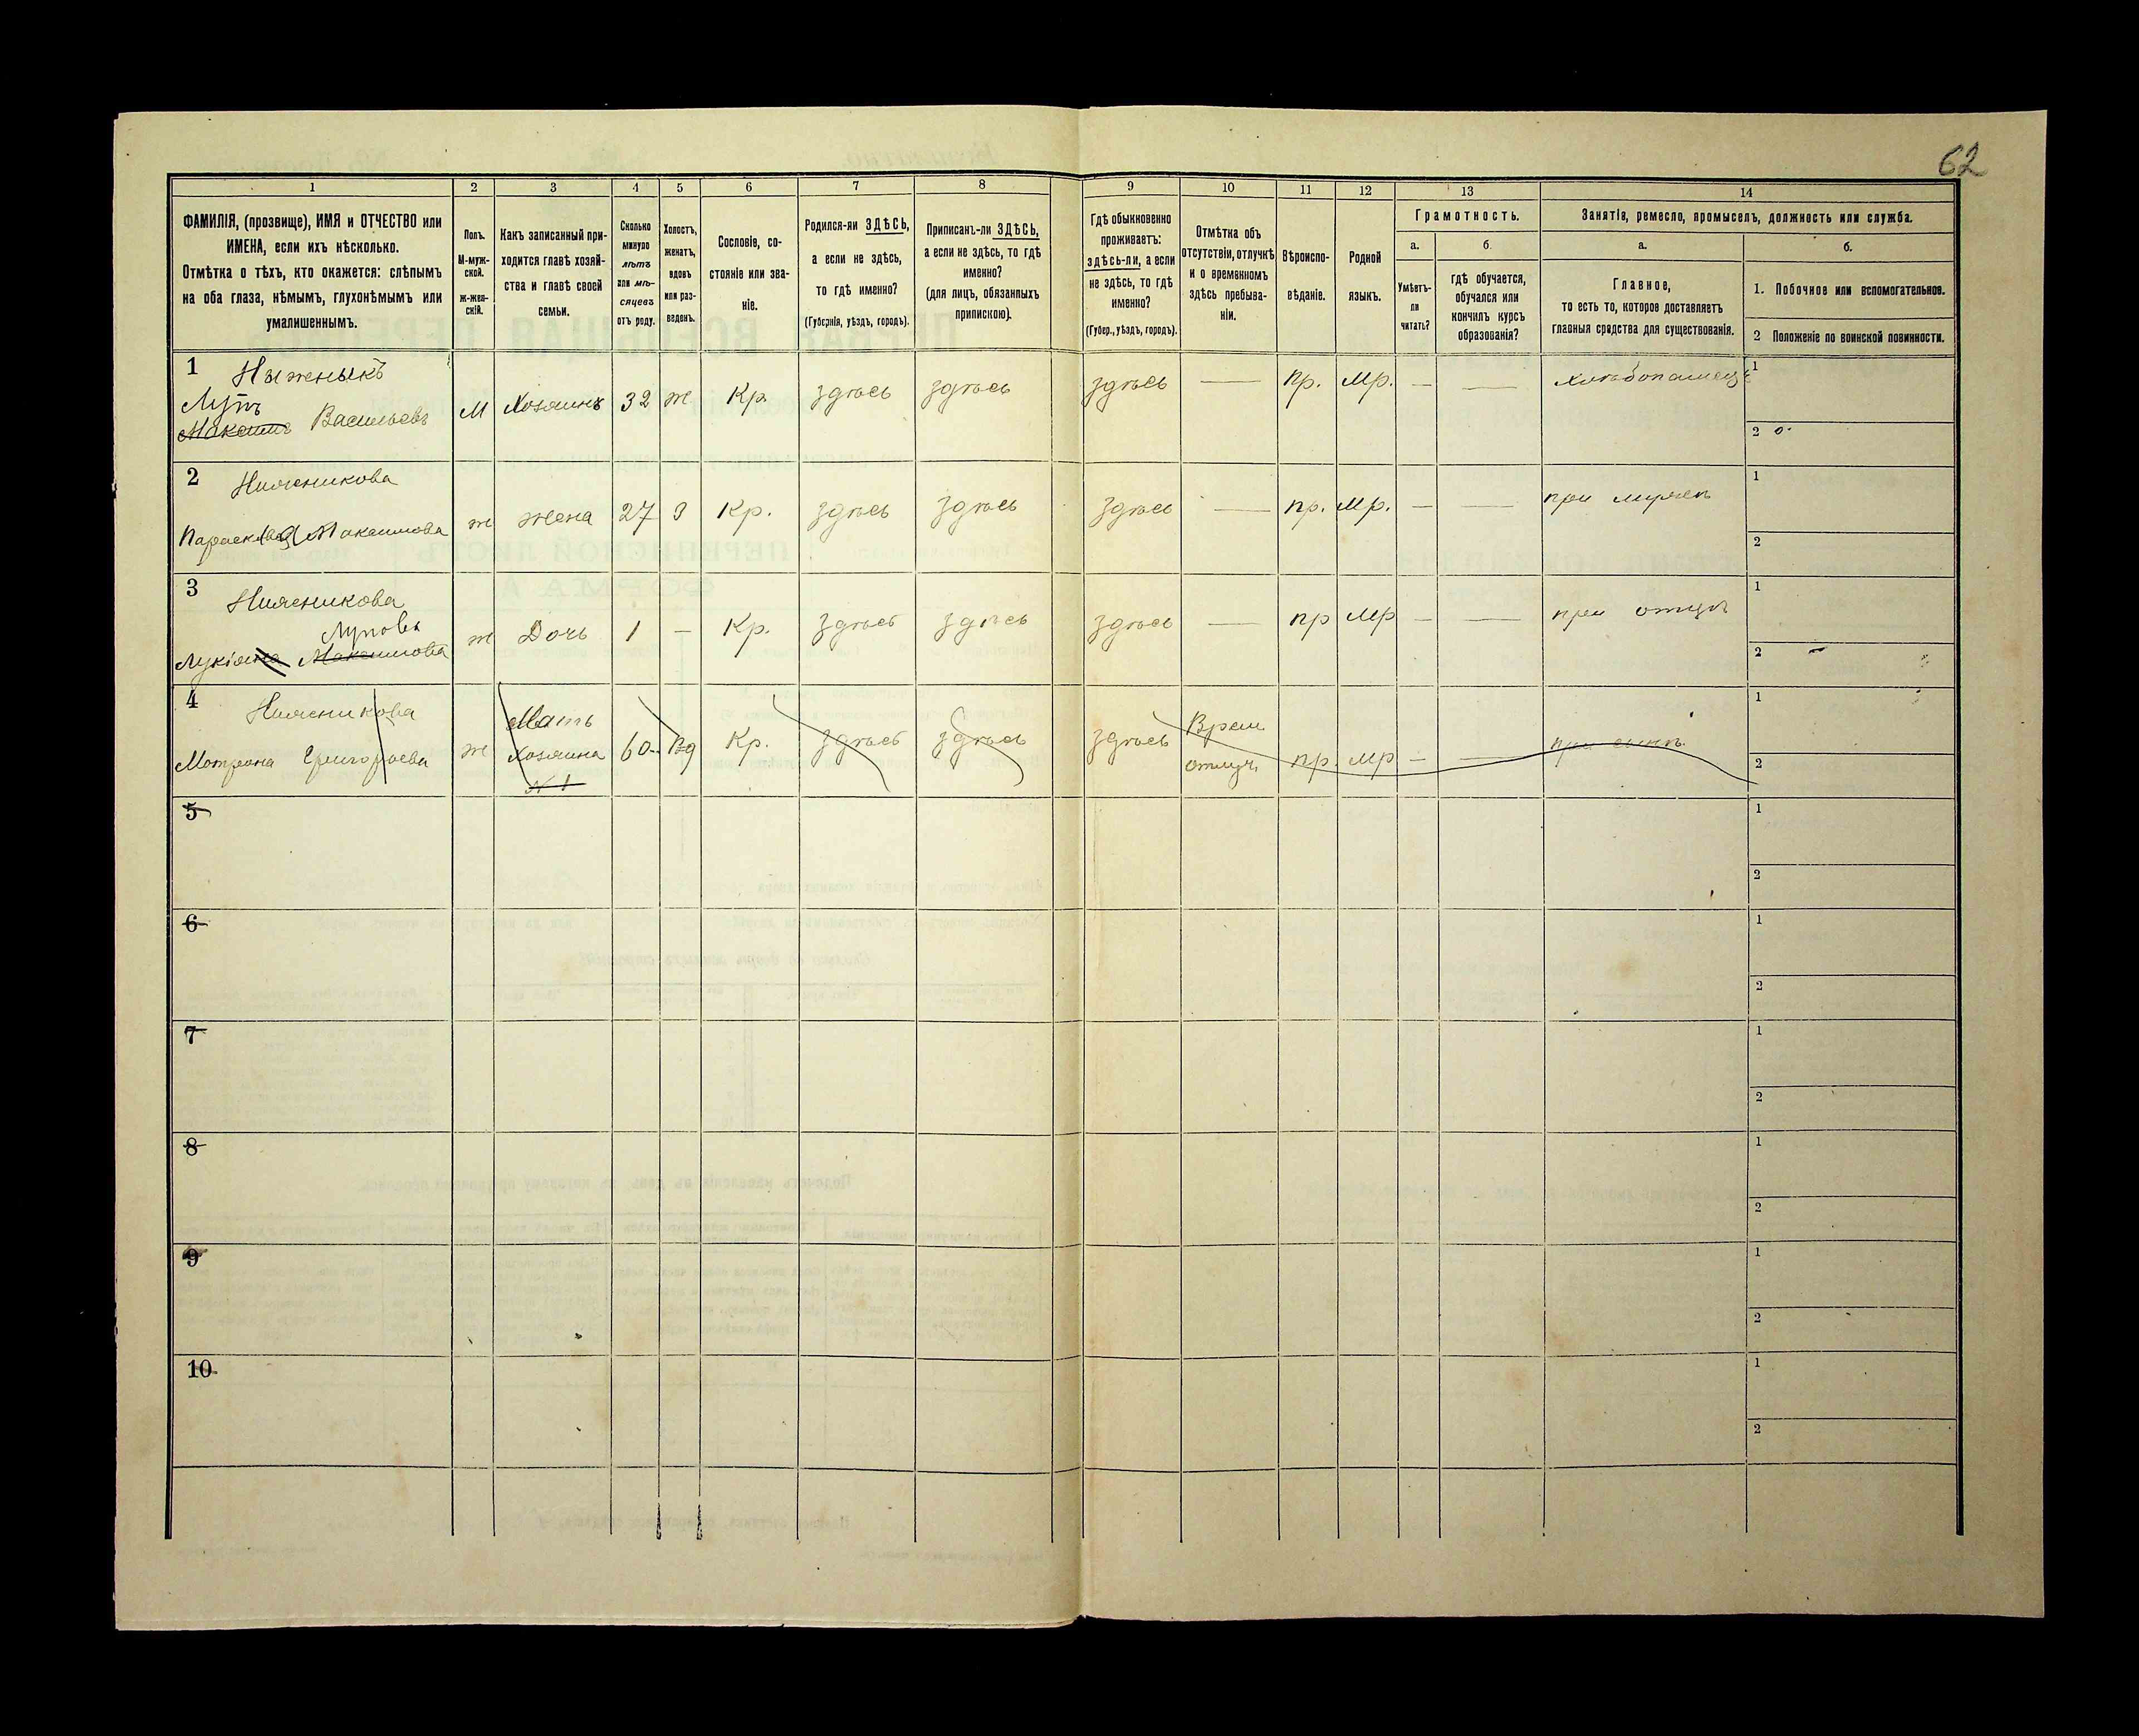 62
1 2 3 4 5 6 7 8 9 10 11 12 13 14
ФАМИЛІЯ, (прозвище), ИМЯ и ОТЧЕСТВО или
ИМЕНА, если ихъ нѣсколько.
Отмѣтка о тѣхъ, кто окажется: слѣпымъ
на оба глаза, нѣмымъ, глухонѣмымъ или
умалишеннымъ.
Полъ.
М-муж-
ской.
ж-жен-
скій.
Какъ записанный при-
ходится главѣ хозяй-
ства и главѣ своей
семьи.
Сколько
минуло
лѣтъ
или мѣ-
сяцевъ
отъ роду.
Холостъ,
женатъ,
вдовъ
или раз-
веденъ.
Сословіе, со-
стояніе или зва-
ніе.
Родился-ли ЗДѢСЬ,
а если не здѣсь,
то гдѣ именно?
(Губернія, уѣздъ, городъ).
Приписанъ-ли ЗДѢСЬ,
а если не здѣсь, то гдѣ
именно?
(для лицъ, обязанныхъ
припискою).
Гдѣ обыкновенно
проживаетъ:
здѣсь-ли, а если
не здѣсь, то гдѣ
именно?
(Губер., уѣздъ, городъ).
Отмѣтка объ
отсутствіи, отлучкѣ
и о временномъ
здѣсь пребыва-
ніи.
Вѣроиспо-
вѣданіе.
Родной
языкъ.
Грамотность.
а.
Умѣетъ-
ли
читать?
б.
гдѣ обучается,
обучался или
кончилъ курсъ
образованія?
Занятія, ремесло, промыселъ, должность или служба.
а.
Главное,
то есть то, которое доставляетъ
главныя средства для существованія.
б.
1. Побочное или вспомогательное.
2 Положеніе по воинской повинности.
1
Лупъ
Максимъ Васильевъ
М Хозяинъ 32 ж Кр. здѣсь здѣсь здѣсь — пр. мр. — — хлѣбопашецъ
1
2 о.
2 Нижникова
Параскева Максимова ж жена 27 З Кр. здѣсь здѣсь здѣсь — пр. мр. — — при мужѣ
1
2
3 Нижникова
Лупова
Лукіяна Максимова ж Дочь 1 — Кр. здѣсь здѣсь здѣсь — пр мр — — при отцѣ
1
2 —
4 Нижникова
Мотрона Григорьева ж Мать
Хозяина
N 1
60 Вд Кр. здѣсь здѣсь здѣсь Врем
отлуч. пр. мр — — при сынѣ
1
2
5
1
2
6
1
2
7
1
2
8
1
2
9
1
2
10
1
2